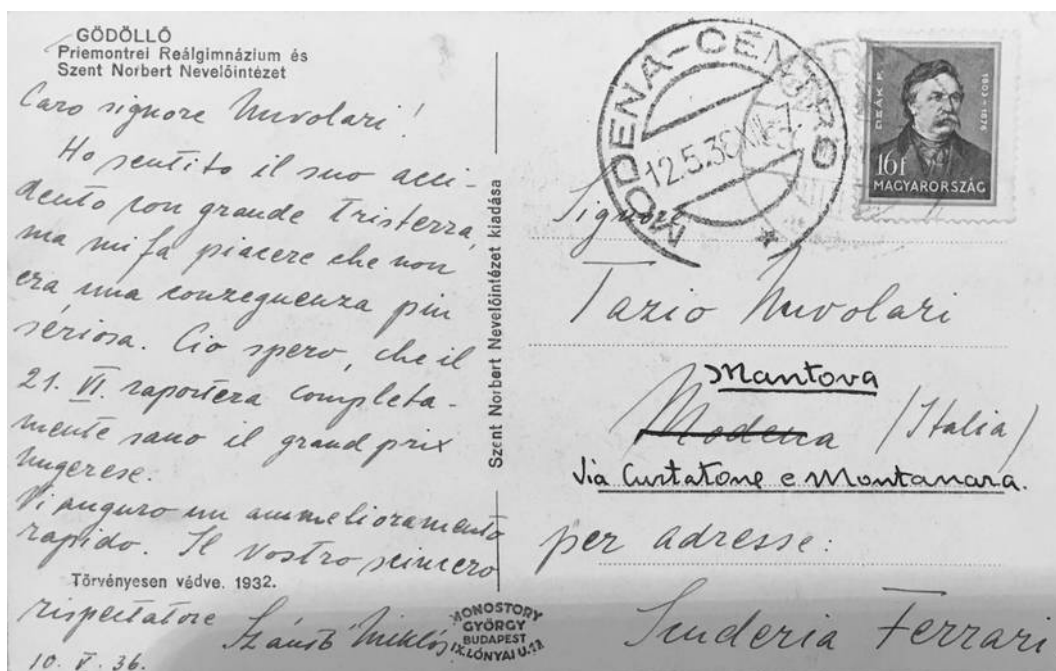 GÖDÖLLŐ
Priemontrei Reálgimnázium és
Szent Norbert Nevelőintézet
Caro signore Nuvolari!
Ho sentito il suo acci-
dento con grande tristezza,
ma mi fa piacere che non
era una conzeguenza piu
sériosa. Cio spero, che il
21. VI. raportera completa-
mente sano il grand prix
hugerese.
Vi auguro un ammelioramento
rapido. Il Vostro scincero
Törvényesen védve. 1932.
rispettatore Szántó Miklós
10. V. 36.
Szent Norbert Nevelőintézet kiadása
MONOSTORY
GYÖRGY
BUDAPEST
IX. LÓNYAI U. 12
MODENA-CENTRO
12.5.36
DEÁK F.
1803-1876
16f
MAGYARORSZÁG
Signore
Tazio Nuvolari
Mantova
Modena (Italia)
Via Curtatone e Montanara.
per adresse:
Scuderia Ferrari